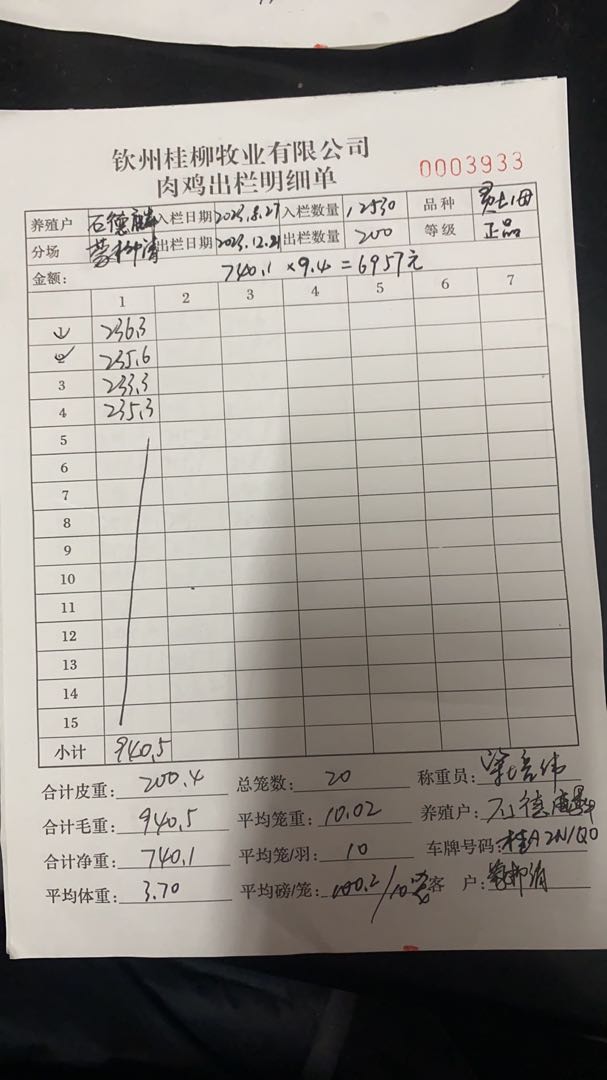 钦州桂柳牧业有限公司
肉鸡出栏明细单
0003933
养殖户 石德麟 入栏日期 2023.8.27 入栏数量 12530 品种
分场 出栏日期 2023.12.21 出栏数量 200 等级 正品
金额: 740.1 ×9.4 =6957元
1 2 3 4 5 6 7
1 236.3
2 235.6
3 233.3
4 235.3
5
6
7
8
9
10
11
12
13
14
15
小计 940.5
合计皮重: 200.4 总笼数: 20 称重员:
合计毛重: 940.5 平均笼重: 10.02 养殖户: 石德麟
合计净重: 740.1 平均笼/羽: 10 车牌号码:
平均体重: 3.70 平均磅/笼: 100.2/10笼 客 户: